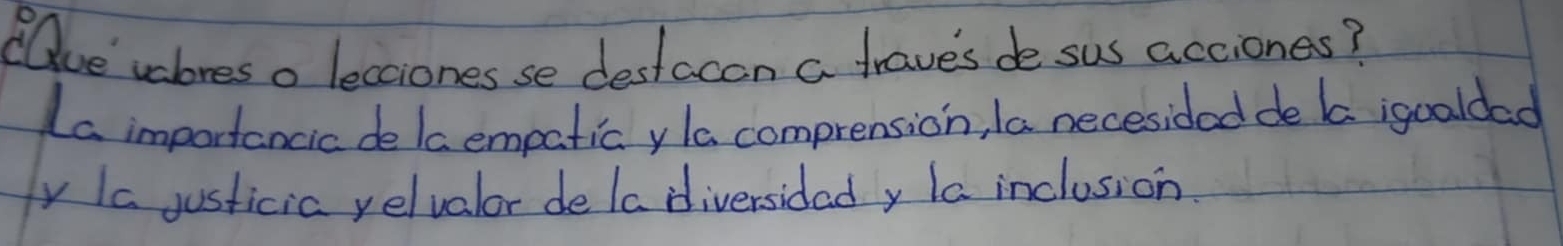 ¿Qué valores o lecciones se destacan a través de sus acciones?
La importancia de la empatía y la comprensión, la necesidad de la igualdad
y la justicia y el valor de la diversidad y la inclusión.